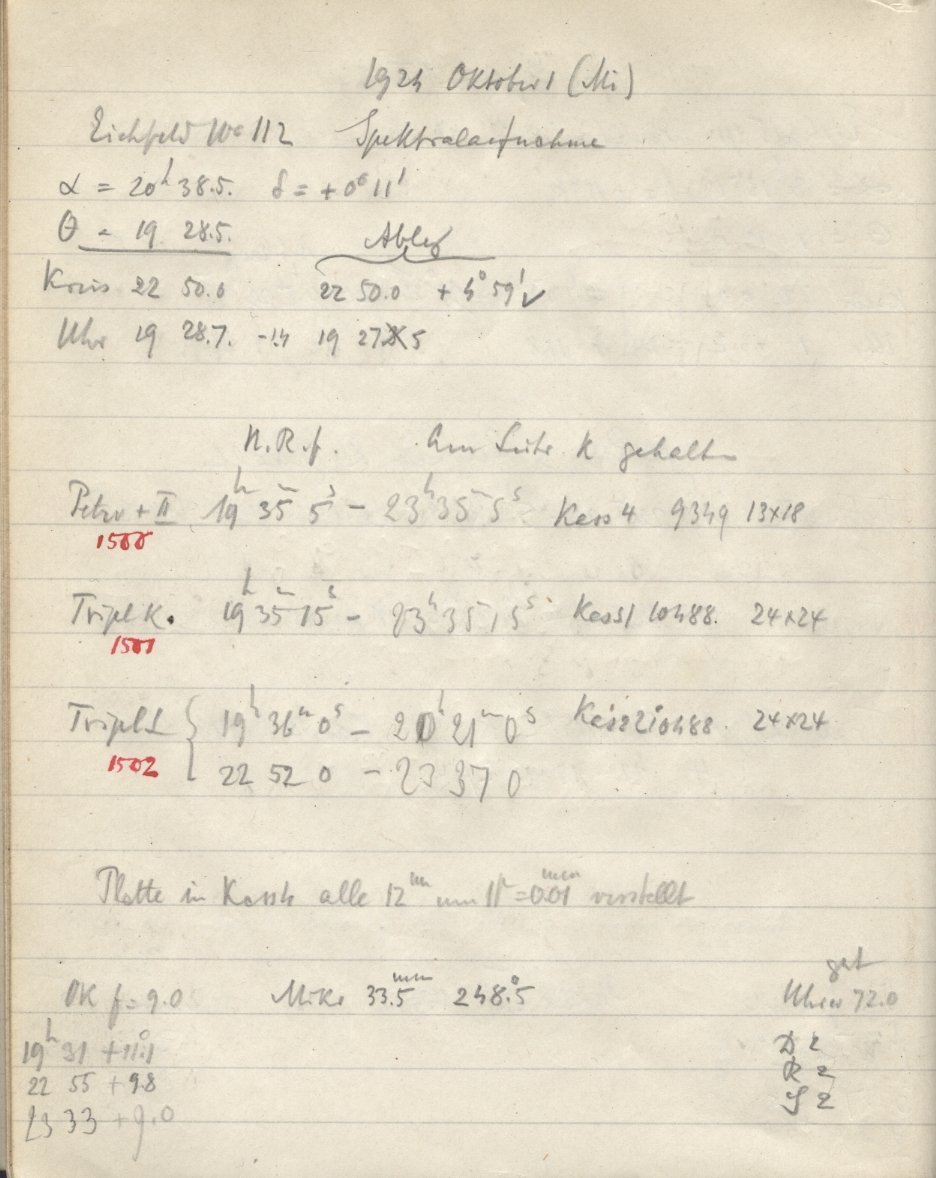 1924 Oktober 1 (Mi)
Eichfeld No 112 Spektralaufnahme
α = 20h 38.5. δ = +0° 11'
θ = 19 28.5. Ables
Kreis 22 50.0 22 50.0 + 4° 59' ✓
Uhr 19 28.7. -1.4 19 27 5
N.R.f. Am Leitr K gehalten
Petzv + II 19h 35m 5s - 23h 35m 5s Kass 4 9349 13x18
1500
Tripl K. 19h 35m 15s - 23h 35 15s Kass 1 10488. 24x24
1501
Tripl L { 19h 36m 0s - 20h 21m 0s Kass 2 10488. 24x24
1502
22 52 0 - 23 37 0
Platte in Kassette alle 12m um 11μ = 0.01mm verstellt
gut
OK f = 9.0 Mikr 33.5mm 248°.5 Uhren 72.0
19h 31 + 11°.1 D 2
22 55 + 9.8 R 2
23 33 + 9.0 S 2